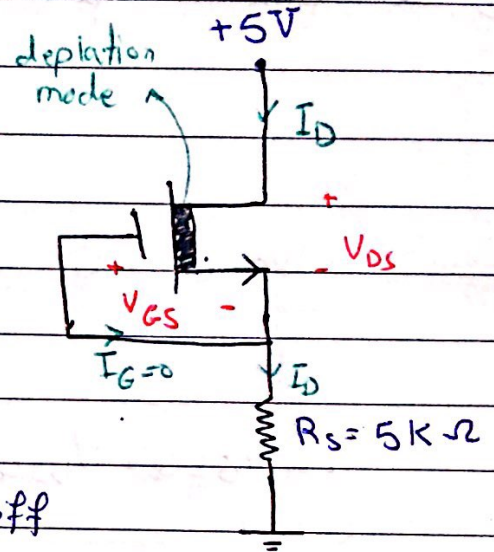 +5V
depiation
mode
I_D
+
V_DS
-
+
V_GS
-
I_G=0
I_D
R_S = 5K Ω
ff